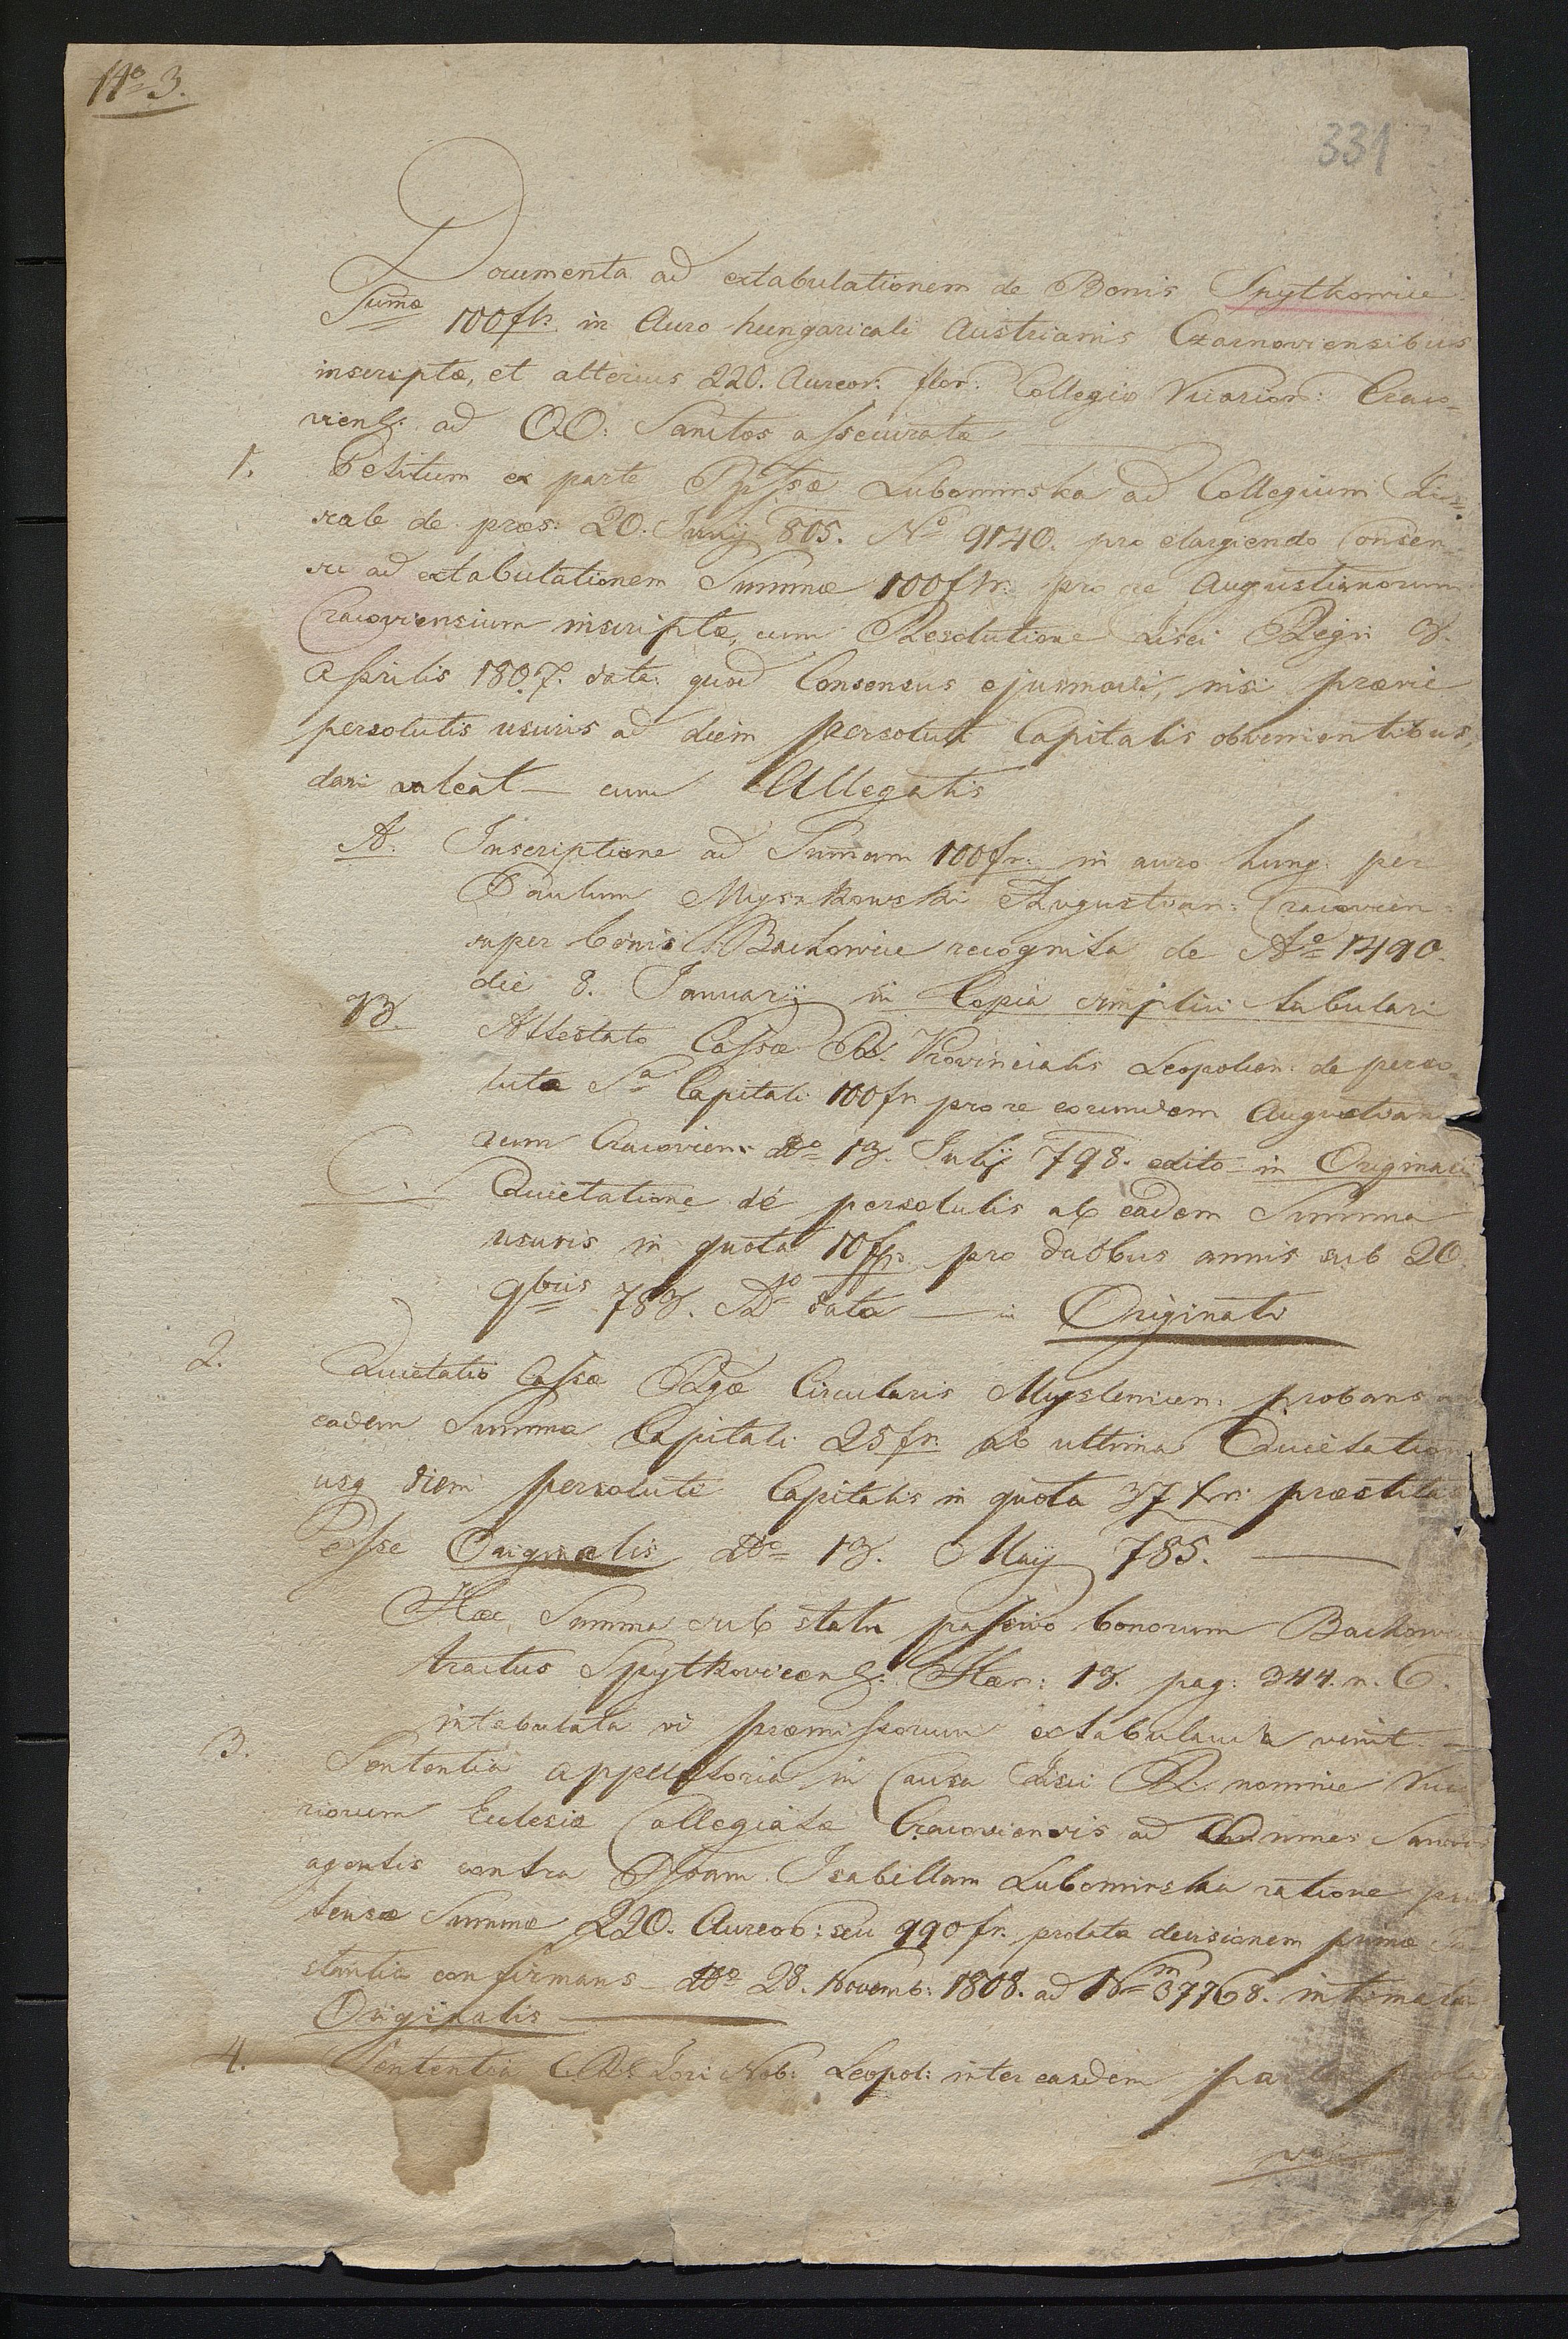 No 3.
331
Documenta ad extabulationem de Bonis Spytkowice
Sumæ 100 fn. in Auro hungaricali Austrianis Czarnoviensibus
inscriptæ, et alterius 220. Aureor: flor: Collegio Vicarior: Craco-
viens: ad OO: Sanctos assecuratæ
1. Petitum ex parte Ppssæ Lubomirska ad Collegium Fis-
cale de præs: 20. Junij 805. No 9140. pro elargiendo Consen-
su ad extabulationem Summæ 100 fn. pro re Augustianorum
Cracoviensium inscriptæ, cum Resolutione Fisci Regii 3.
Aprilis 1807. data quod Consensus ejusmodi, nisi prævie
persolutis usuris ad diem persoluti Capitalis obvenientibus,
dari valeat — cum Allegatis
A. Inscriptione ad Sumam 100 fn. in auro hung: per
Paulum Myszkowski Augustian: Cracovien:
super bonis Bachowice recognita de Ao 1490.
die 8. Januarij in Copia simplici tabulari
B. Attestato Cassæ R. Provincialis Leopolien: de perso-
luta Sa Capitali 100 fn pro re eorundem Augustian
rum Cracovien: ddo 13. Julij 798. edito in Originali
C. Quietatione de persolutis ab eadem Summa
usuris in quota 10 fn. pro duobus annis sub 20.
9bris 783. Do data — in Originali
2. Quietatio Cassæ Rgæ Circularis Myslenicen: probans
eadem Summa Capitali 25 fn. ab ultima Quietation
usq diem persoluti Capitalis in quota 37 fn: præstita
esse Originalis ddo 13. Maij 785. —
Hæc Summa sub statu passivo bonorum Bachowice
tractus Spytkovicens: Hær: 13. pag: 344. n. 6.
intabulata vi præmissorum extabulanda venit. —
3. Sententia appellatoria in Causa Fisci R. nomine Vica
riorum Eclesiæ Collegiatæ Cracoviensis ad Omnes Sanctos
agentis contra Ppssam Isabellam Lubomirska ratione præ
tensæ Summæ 220. Aureor: seu 990 fn. prolata decisionem primæ In
stantiæ confirmans ddo 28. Novemb: 1808. ad Nm 37768. intimata
Originalis —
4. Sententia CR Fori Nob: Leopol: inter easdem partes prola